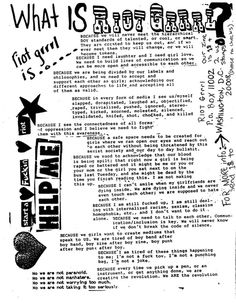 WHAT IS RIOT GRRRL?
riot grrrl is...
BECAUSE we will never meet the hierarchical
BOY standards of talented, or cool, or smart.
They are created to keep us out, and if we
ever meet them they will change, or we will
become tokens.
BECAUSE I need laughter and I need girl love.
We need to build lines of communication so we
can be more open and accessible to each other.
BECAUSE we are being divided by our labels and
philosophies, and we need to accept and
support each other as girls; acknowledging our
different approaches to life and accepting all
of them as valid.
BECAUSE in every form of media I see us/myself
slapped, decapitated, laughed at, objectified,
raped, trivialized, pushed, ignored, stereotyped,
kicked, scorned, molested, silenced,
invalidated, knifed, shot, choked, and killed
BECAUSE I see the connectedness of all forms
of oppression and I believe we need to fight
them with this awareness.
BECAUSE a safe space needs to be created for
girls where we can open our eyes and reach out
to each other without being threatened by this
sexist society and our day to day bullshit.
BECAUSE we need to acknowledge that our blood
is being spilt; that right now a girl is being
raped or battered and it might be me or you or
your mom or the girl you sat next to on the
bus last Tuesday, and she might be dead by the
time you finish reading this. I am not making
this up.
BECAUSE I can't smile when my girlfriends are
dying inside. We are dying inside and we never
even touch each other; we are supposed to hate
each other.
BECAUSE I am still fucked up, I am still dealing
with internalized racism, sexism, classism,
homophobia, etc., and I don't want to do it
alone.
BECAUSE we need to talk to each other. Communication/inclusion
is key. We will never know
if we don't break the code of silence.
BECAUSE we girls want to create mediums that
speak to US. We are tired of boy band after
boy band, boy zine after boy zine, boy punk
after boy punk after boy.
BECAUSE I am tired of these things happening
to me; I'm not a fuck toy. I'm not a punching
bag. I'm not a joke.
BECAUSE every time we pick up a pen, or an
instrument, or get anything done, we are
creating the revolution. We ARE the revolution
HELP ME
start a fuckin riot
Riot Grrrl
Washington D.C.
No we are not paranoid.
No we are not manhaters.
No we are not worrying too much.
No we are not taking it too seriously.